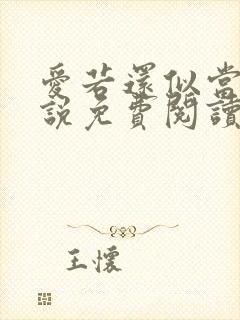 愛若還似當
說免費閱讀
王懷